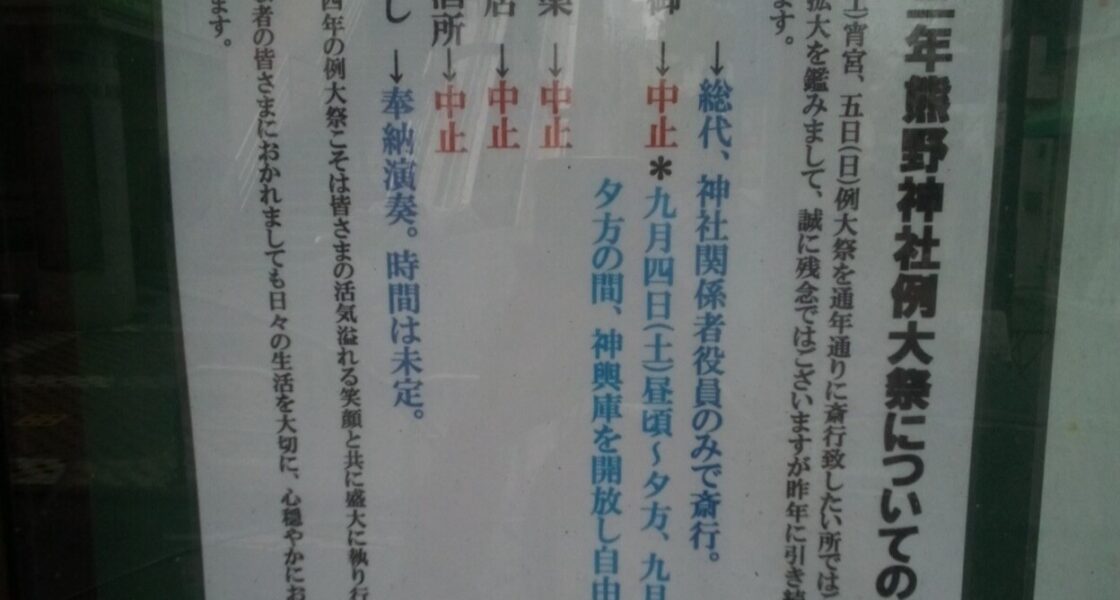 三年熊野神社例大祭についての
土)宵宮、五日(日)例大祭を通年通りに斎行致したい所ではご
拡大を鑑みまして、誠に残念ではございますが昨年に引き続
ます。
→総代、神社関係者役員のみで斎行。
御→中止＊九月四日(土)昼頃～夕方、九月
夕方の間、神輿庫を開放し自由
楽→中止
店→中止
酒所→中止
し→奉納演奏。時間は未定。
四年の例大祭こそは皆さまの活気溢れる笑顔と共に盛大に執り行
者の皆さまにおかれましても日々の生活を大切に、心穏やかにお
ます。